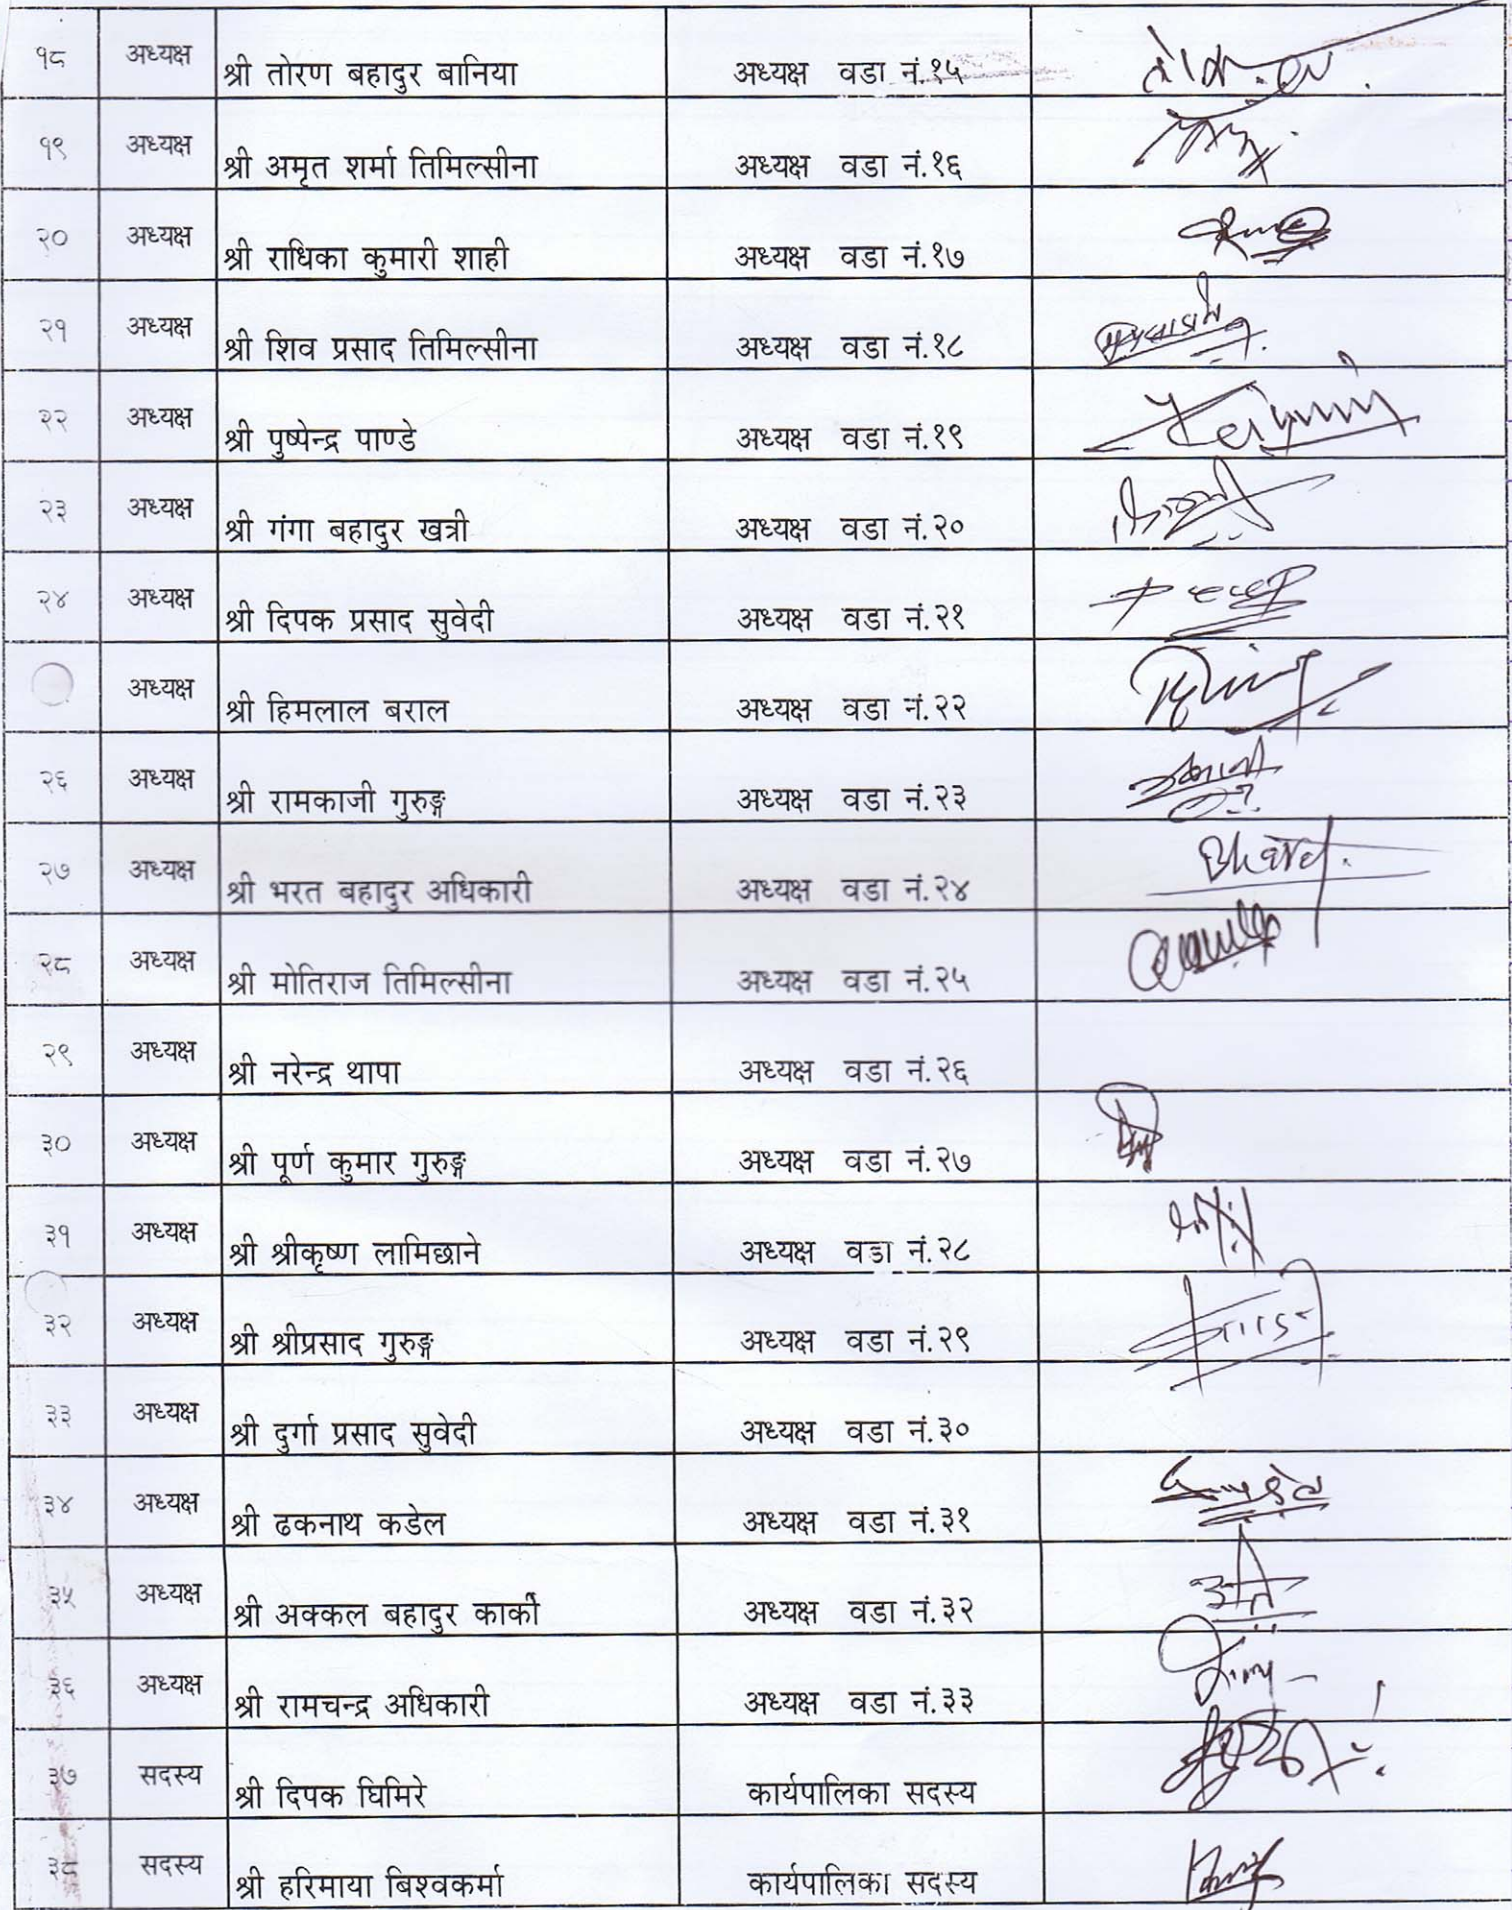 १८ अध्यक्ष श्री तोरण बहादुर बानिया अध्यक्ष वडा नं.१५
१९ अध्यक्ष श्री अमृत शर्मा तिमिल्सीना अध्यक्ष वडा नं.१६
२० अध्यक्ष श्री राधिका कुमारी शाही अध्यक्ष वडा नं.१७
२१ अध्यक्ष श्री शिव प्रसाद तिमिल्सीना अध्यक्ष वडा नं.१८
२२ अध्यक्ष श्री पुष्पेन्द्र पाण्डे अध्यक्ष वडा नं.१९
२३ अध्यक्ष श्री गंगा बहादुर खत्री अध्यक्ष वडा नं.२०
२४ अध्यक्ष श्री दिपक प्रसाद सुवेदी अध्यक्ष वडा नं.२१
अध्यक्ष श्री हिमलाल बराल अध्यक्ष वडा नं.२२
२६ अध्यक्ष श्री रामकाजी गुरुङ्ग अध्यक्ष वडा नं.२३
२७ अध्यक्ष श्री भरत बहादुर अधिकारी अध्यक्ष वडा नं.२४ Bharat
२८ अध्यक्ष श्री मोतिराज तिमिल्सीना अध्यक्ष वडा नं.२५
२९ अध्यक्ष श्री नरेन्द्र थापा अध्यक्ष वडा नं.२६
३० अध्यक्ष श्री पूर्ण कुमार गुरुङ्ग अध्यक्ष वडा नं.२७
३१ अध्यक्ष श्री श्रीकृष्ण लामिछाने अध्यक्ष वडा नं.२८
३२ अध्यक्ष श्री श्रीप्रसाद गुरुङ्ग अध्यक्ष वडा नं.२९
३३ अध्यक्ष श्री दुर्गा प्रसाद सुवेदी अध्यक्ष वडा नं.३०
३४ अध्यक्ष श्री ढकनाथ कडेल अध्यक्ष वडा नं.३१
३५ अध्यक्ष श्री अक्कल बहादुर कार्की अध्यक्ष वडा नं.३२
३६ अध्यक्ष श्री रामचन्द्र अधिकारी अध्यक्ष वडा नं.३३
३७ सदस्य श्री दिपक घिमिरे कार्यपालिका सदस्य
३८ सदस्य श्री हरिमाया बिश्वकर्मा कार्यपालिका सदस्य